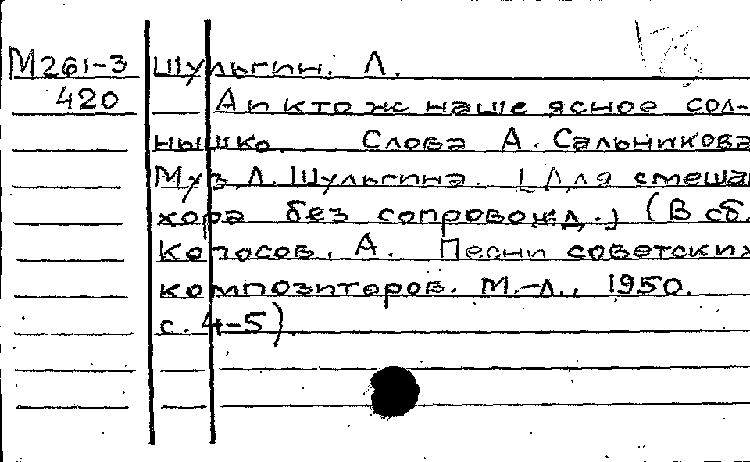 М261-3 Шульгин, Л.
420 А и кто ж наше ясное сол-
нышко. Слова А. Сальникова
Муз. Л. Шульгина. [Для смешан
хора без сопровожд.] (В сб.
Колосов, А. Песни советских
композиторов. М.-Л., 1950.
с. 4-5).